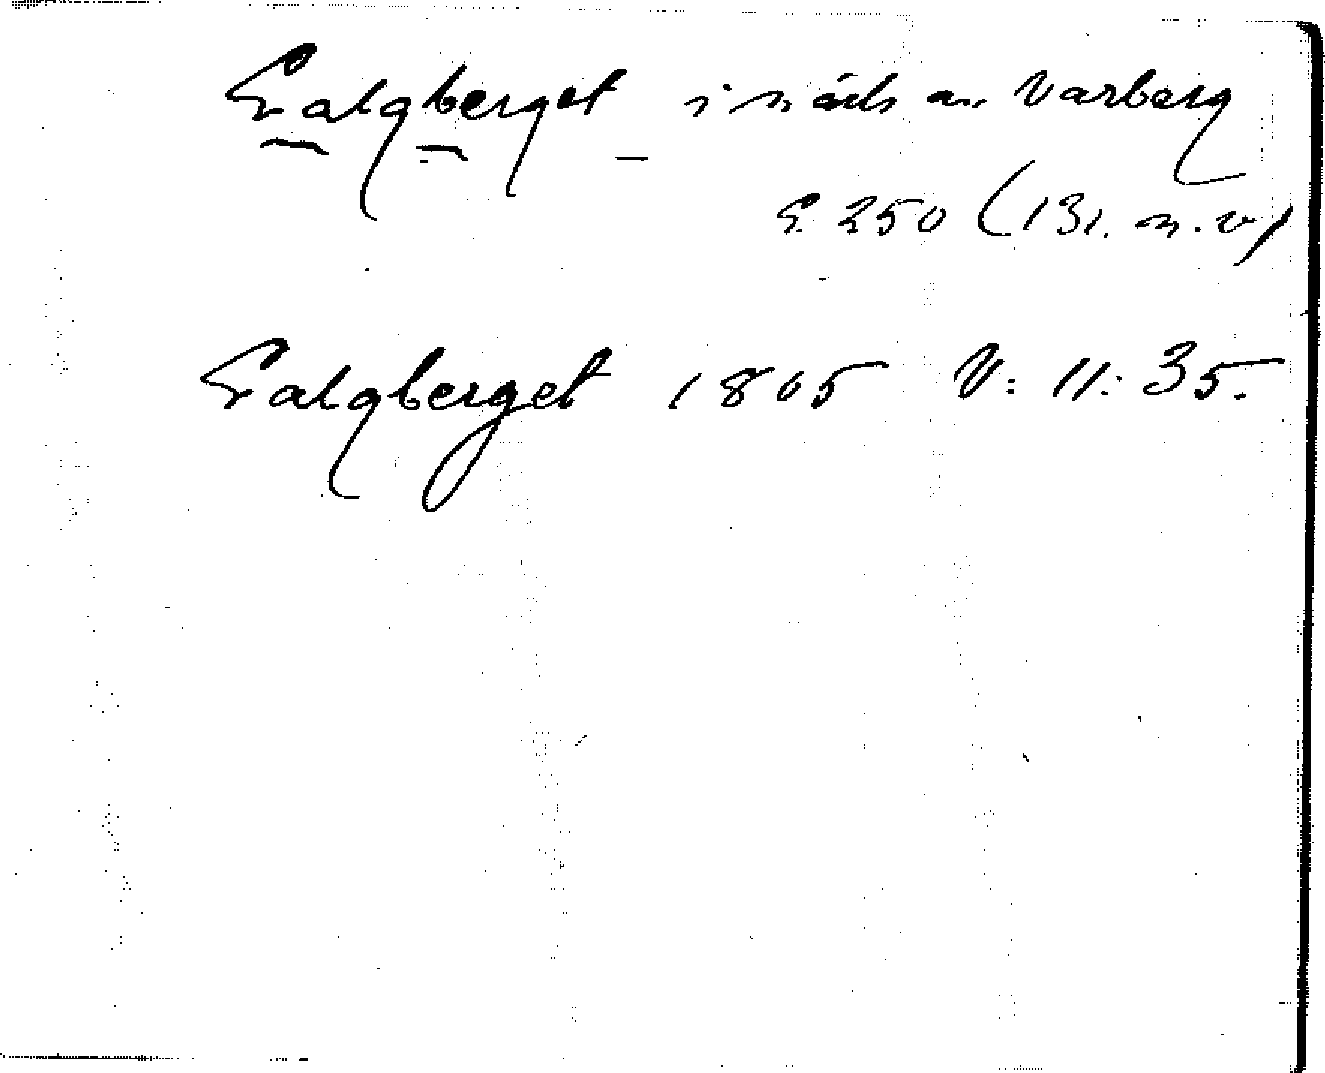 Galgberget i närh av Varberg
250 (131. n. v)
Galgberget 1805 V: 11: 35.